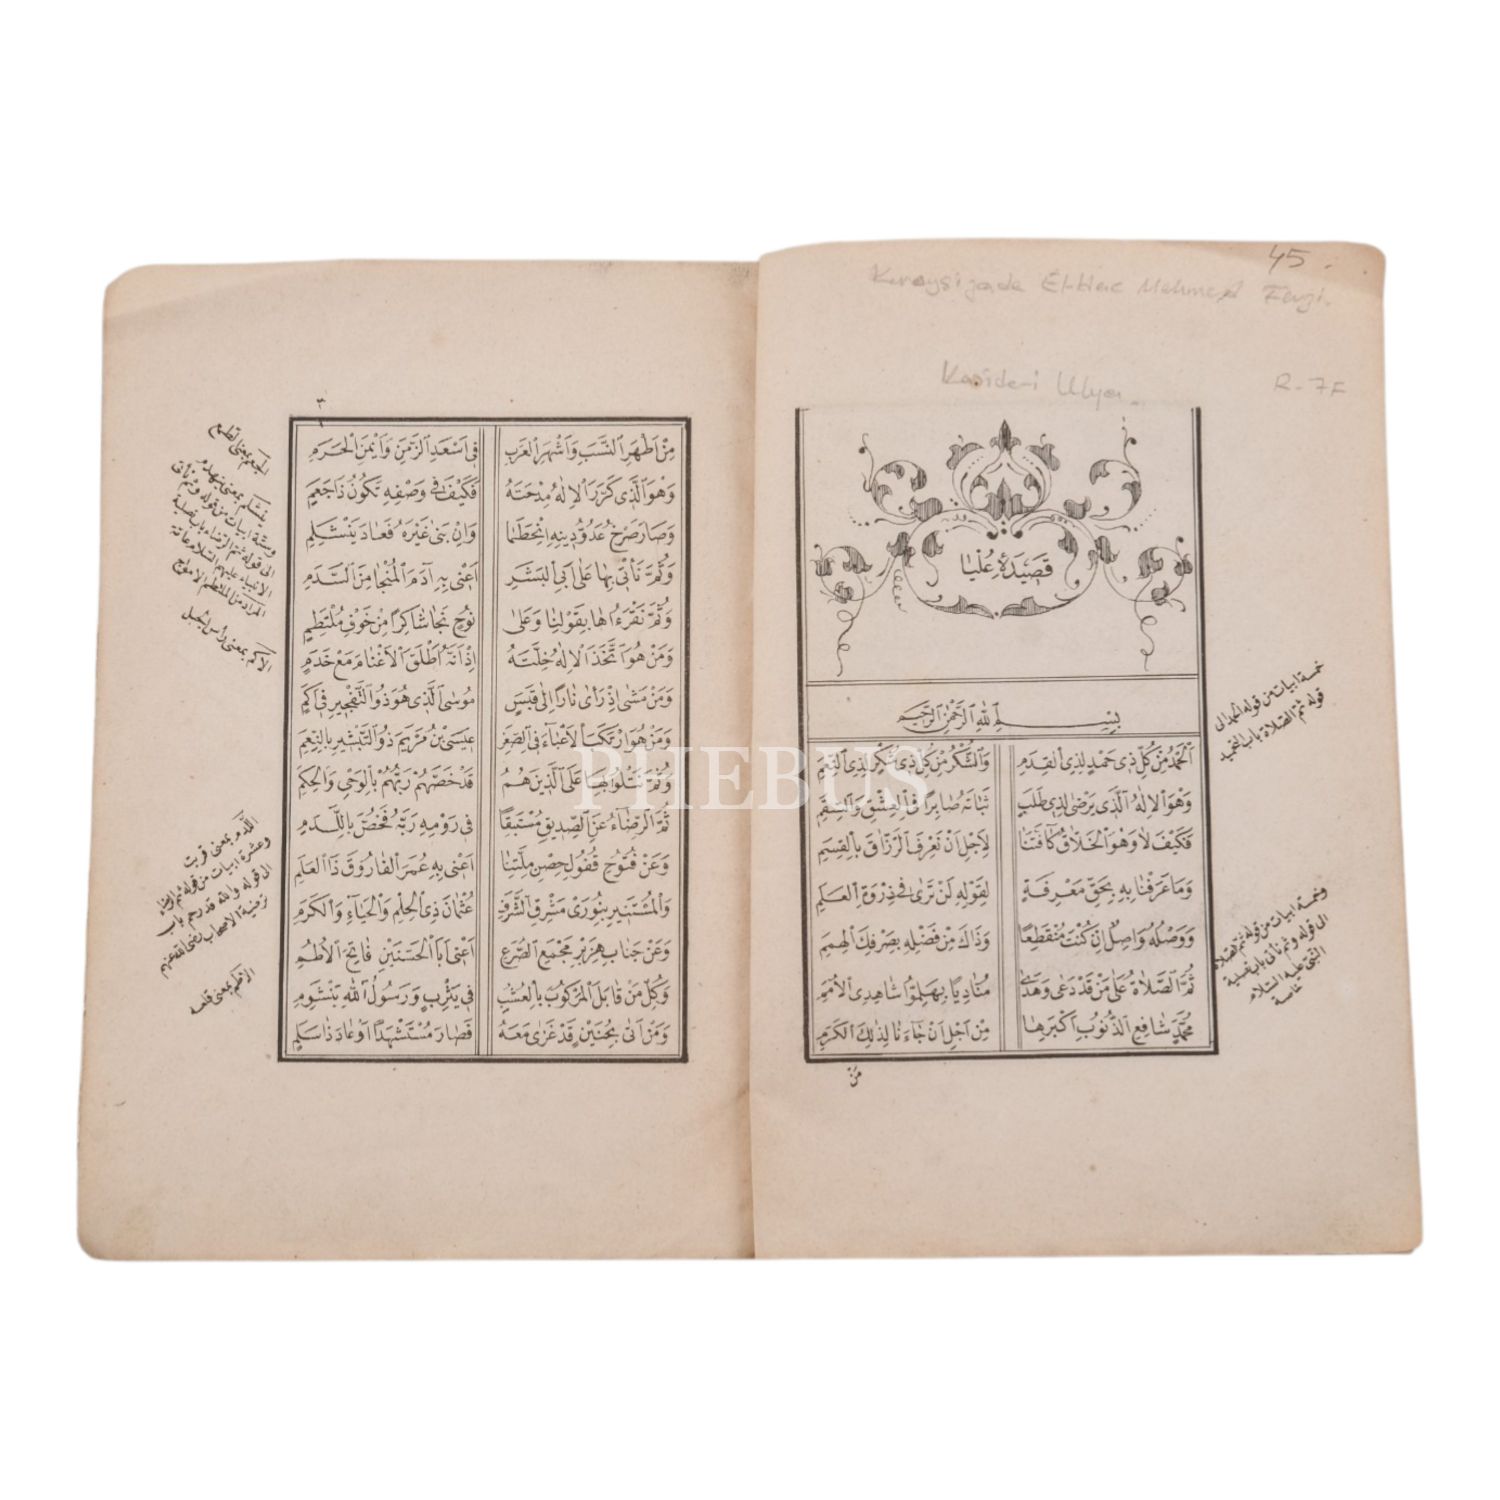 45
Kureysizade El-Hac Mehmed Fevzi.
Kaside-i Ulya
R-7F
قَصِيدَهٔ عُلْيَا
بِسْمِ اللّٰهِ الرَّحْمٰنِ الرَّحِيمِ
اَلْحَمْدُ مِنْ كُلِّ ذِى حَمْدٍ لِذِى الْقِدَمِ وَالشُّكْرُ مِنْ كُلِّ ذِى شُكْرٍ لِذِى النِّعَمِ
وَهُوَ الْاِلٰهُ الَّذِى يَرْضٰى لِذِى طَلَبٍ ثَبَاتَهُ صَابِرًا فِى الْعِشْقِ وَالسَّقَمِ
فَكَيْفَ لَا وَهُوَ الْخَلَّاقُ كَافَّتَنَا لِاَجْلِ اَنْ نَعْرِفَ الرَّزَّاقَ بِالْقِسَمِ
وَمَا عَرَفْنَا بِهِ بِحَقِّ مَعْرِفَةٍ لِقَوْلِهِ لَنْ تَرٰى فِى ذِرْوَةِ الْعَلَمِ
وَوَصْلُهُ وَاصِلٌ اِنْ كُنْتَ مُنْقَطِعًا وَذَاكَ مِنْ فَضْلِهِ بِصَرْفِكَ الْهِمَمِ
ثُمَّ الصَّلَاةُ عَلٰى مَنْ قَدْ دَعٰى وَهَدٰى مُنَادِيًا بِهَلِمُّوا شَاهِدِى الْاُمَمِ
مُحَمَّدٍ شَافِعِ الذُّنُوبِ اَكْبَرِهَا مِنْ اَجْلِ اَنْ جَاءَنَا لِذٰلِكَ الْكَرَمِ
مِنْ
خمسة ابيات من قوله الحمد الى
قوله ثم الصلاة باب التحميد
وخمسة ابيات من قوله ثم الصلاة
الى قوله وثم نأتى باب تصلية
النبى عليه السلام
خاصة
٣
مِنْ اَطْهَرِ النَّسَبِ وَاَشْهَرِ الْعَرَبِ فِى اَسْعَدِ الزَّمَنِ وَاَيْمَنِ الْحَرَمِ
وَهُوَ الَّذِى كَرَّرَ الْاِلٰهُ مِدْحَتَهُ فَكَيْفَ فِى وَصْفِهِ تَكُونُ ذَا جَعَمٍ
وَصَارَ صَرْحُ عَدُوِّ دِينِهِ انْحَطَمَا وَاِنْ بَنٰى غَيْرَهُ فَعَادَ يَنْثَلِمِ
وَثُمَّ نَأْتِى بِهَا عَلٰى اَبِى الْبَشَرِ اَعْنِى بِهِ اٰدَمَ الْمُنْجَا مِنَ النَّدَمِ
وَثُمَّ نَقْرَءُهَا بِقَوْلِنَا وَعَلٰى نُوحٍ نَجَا شَاكِرًا مِنْ خَوْفِ مُلْتَطِمِ
وَمَنْ هُوَ اتَّخَذَ الْاِلٰهُ خُلَّتَهُ اِذْ اَنَّهُ اَطْلَقَ الْاَغْنَامَ مَعْ خَدَمٍ
وَمَنْ مَشٰى اِذْ رَاٰى نَارًا اِلٰى قَبَسٍ مُوسَى الَّذِى هُوَ ذُو التَّفْجِيرِ فِى اَكَمٍ
وَمَنْ هُوَ ارْتَكَبَ الْاَعْبَاءَ فِى الصِّغَرِ عِيسَى بْنِ مَرْيَمَ ذُو التَّبْشِيرِ بِالنِّعَمِ
وَثُمَّ نَتْلُوا بِهَا عَلَى الَّذِينَ هُمْ قَدْ خَصَّهُمْ رَبُّهُمْ بِالْوَحْىِ وَالْحِكَمِ
ثُمَّ الرِّضَاءُ عَنِ الصِّدِّيقِ مُسْتَبِقًا فِى رَوْمِهِ رَبَّهُ فَخُصَّ بِاللَّدَمِ
وَعَنْ فَتُوحِ قُفُولِ حِصْنِ مِلَّتِنَا اَعْنِى بِهِ عُمَرَ الْفَارُوقَ ذَا الْعَلَمِ
وَالْمُسْتَنِيرِ بِنُورَىْ مَشْرِقِ الشَّرَفِ عُثْمَانَ ذِى الْحِلْمِ وَالْحَيَاءِ وَالْكَرَمِ
وَعَنْ جَنَابِ هِزَبْرِ مَجْمَعِ الصَّرَعِ اَعْنِى اَبَا الْحَسَنَيْنِ فَاتِحَ الْاُطُمِ
وَكُلِّ مَنْ قَابَلَ الْمَرْكُوبَ بِالْعُشْبِ فِى يَثْرِبٍ وَرَسُولُ اللّٰهِ
وَمَنْ اَتٰى بِحُنَيْنٍ قَدْ غَزٰى مَعَهُ فَصَارَ مُسْتَشْهَدًا اَوْ عَادَ ذَا سَلَمٍ
الجعم بمعنى الطمع
ينثلم بمعنى ينهدم
وستة ابيات من قوله وثم نأتى
الى قوله ثم الرضاء باب تصلية
الانبياء عليهم السلام عامة
المراد من الملتطم الامواج
الاكم بمعنى رأس الجبل
اللدم بمعنى قربت
وعشرة ابيات من قوله ثم الرضاء
الى قوله والله قد رحم باب
ترضية الاصحاب رضى الله عنهم
بمعنى قلعه
PHEBUS